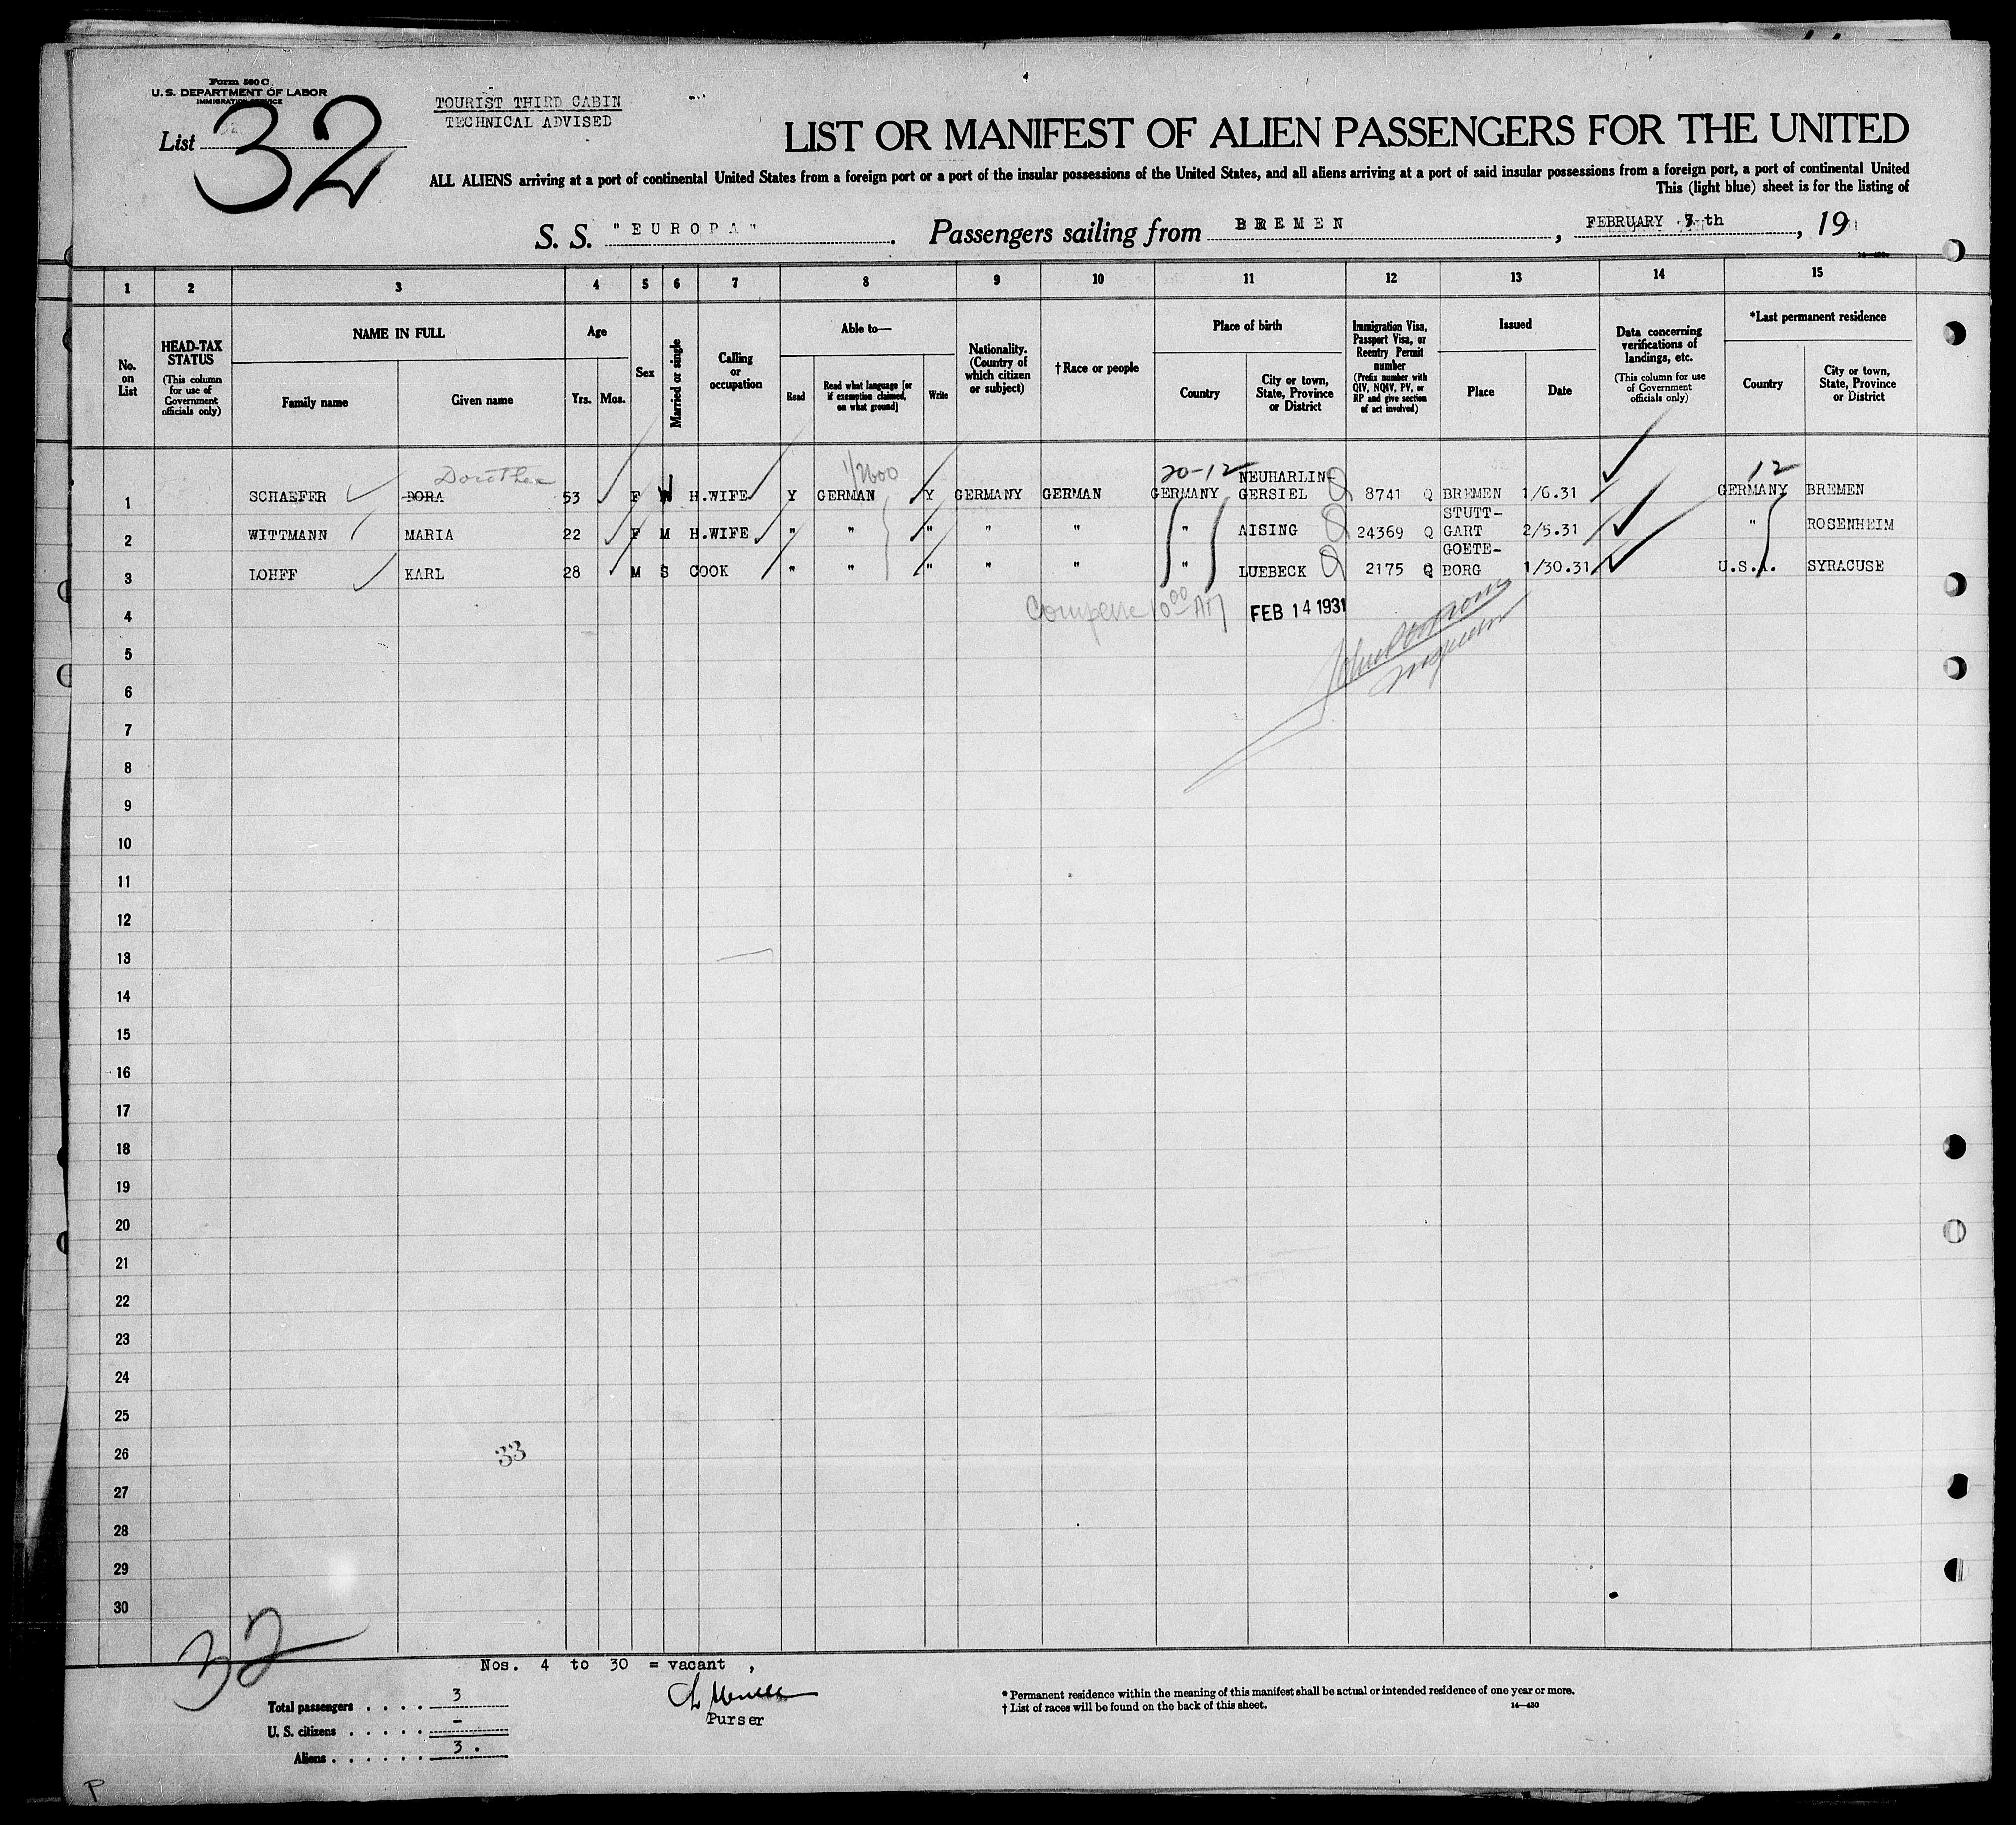 Form 500 C
U. S. DEPARTMENT OF LABOR
IMMIGRATION SERVICE
List 32
TOURIST THIRD CABIN
TECHNICAL ADVISED
LIST OR MANIFEST OF ALIEN PASSENGERS FOR THE UNITED
ALL ALIENS arriving at a port of continental United States from a foreign port or a port of the insular possessions of the United States, and all aliens arriving at a port of said insular possessions from a foreign port, a port of continental United
This (light blue) sheet is for the listing of
S. S. "EUROPA". Passengers sailing from BREMEN, FEBRUARY 7th, 19
1 2 3 4 5 6 7 8 9 10 11 12 13 14 15
No. on List
HEAD-TAX STATUS (This column for use of Government officials only)
NAME IN FULL
Family name
Given name
Age
Yrs.
Mos.
Sex
Married or single
Calling or occupation
Able to—
Read
Read what language [or if exemption claimed, on what ground]
Write
Nationality. (Country of which citizen or subject)
† Race or people
Place of birth
Country
City or town, State, Province or District
Immigration Visa, Passport Visa, or Reentry Permit number (Prefix number with QIV, NQIV, PV, or RP and give section of act involved)
Issued
Place
Date
Data concerning verifications of landings, etc. (This column for use of Government officials only)
*Last permanent residence
Country
City or town, State, Province or District
Dorothea 1/2600 20-12 NEUHARLIN- 12
1 SCHAEFER DORA 53 F H.WIFE Y GERMAN Y GERMANY GERMAN GERMANY GERSIEL Q 8741 Q BREMEN 1/6.31 GERMANY BREMEN
STUTT-
2 WITTMANN MARIA 22 F M H.WIFE " " " " " " AISING Q 24369 Q GART 2/5.31 " ROSENHEIM
GOETE-
3 LOHFF KARL 28 M S COOK " " " " " " LUEBECK Q 2175 Q BORG 1/30.31 U.S.A. SYRACUSE
4 10 00 AM FEB 14 1931
5
6
7
8
9
10
11
12
13
14
15
16
17
18
19
20
21
22
23
24
25
26 33
27
28
29
30
32
Nos. 4 to 30 = vacant ,
Total passengers . . . . . 3
U. S. citizens . . . . . -
Aliens . . . . . . 3 .
Purser
* Permanent residence within the meaning of this manifest shall be actual or intended residence of one year or more.
† List of races will be found on the back of this sheet. 14—430
P